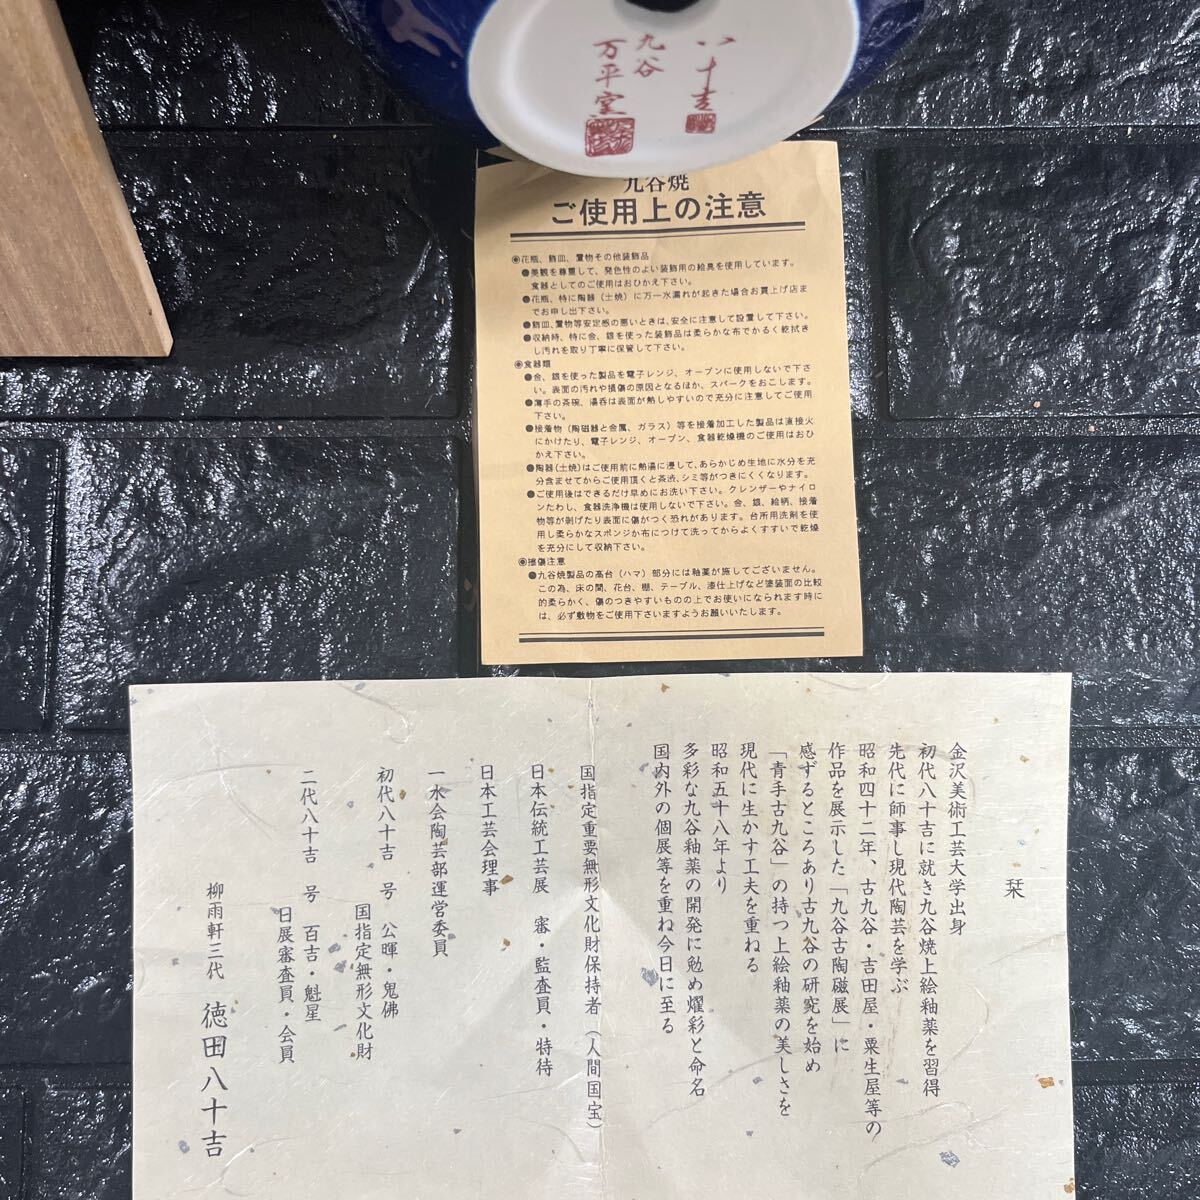 八十吉
九谷
万平窯
九谷焼
ご使用上の注意
◉花瓶、飾皿、置物その他装飾品
●美観を尊重して、発色性のよい装飾用の絵具を使用しています。
食器としてのご使用はおひかえ下さい。
●花瓶、特に陶器（土焼）に万一水漏れが起きた場合お買上げ店ま
でお申し出下さい。
●飾皿、置物等安定感の悪いときは、安全に注意して設置して下さい。
●収納時、特に金、銀を使った装飾品は柔らかな布でかるく乾拭き
し汚れを取り丁寧に保管して下さい。
◉食器類
●金、銀を使った製品を電子レンジ、オーブンに使用しないで下さ
い。表面の汚れや損傷の原因となるほか、スパークをおこします。
●薄手の茶碗、湯呑は表面が熱しやすいので充分に注意してご使用
下さい。
●接着物（陶磁器と金属、ガラス）等を接着加工した製品は直接火
にかけたり、電子レンジ、オーブン、食器乾燥機のご使用はおひ
かえ下さい。
●陶器（土焼）はご使用前に熱湯に浸して、あらかじめ生地に水分を充
分含ませてからご使用頂くと茶渋、シミ等がつきにくくなります。
●ご使用後はできるだけ早めにお洗い下さい。クレンザーやナイロ
ンたわし、食器洗浄機は使用しないで下さい。金、銀、絵柄、接着
物等が剥げたり表面に傷がつく恐れがあります。台所用洗剤を使
用し柔らかなスポンジか布につけて洗ってからよくすすいで乾燥
を充分にして収納下さい。
◉擦傷注意
●九谷焼製品の高台（ハマ）部分には釉薬が施してございません。
この為、床の間、花台、棚、テーブル、漆仕上げなど塗装面の比較
的柔らかく、傷のつきやすいものの上でお使いになられます時に
は、必ず敷物をご使用下さいますようお願いいたします。
栞
金沢美術工芸大学出身
初代八十吉に就き九谷焼上絵釉薬を習得
先代に師事し現代陶芸を学ぶ
昭和四十二年、古九谷・吉田屋・粟生屋等の
作品を展示した「九谷古陶磁展」に
感ずるところあり古九谷の研究を始め
「青手古九谷」の持つ上絵釉薬の美しさを
現代に生かす工夫を重ねる
昭和五十八年より
多彩な九谷釉薬の開発に勉め燿彩と命名
国内外の個展等を重ね今日に至る
国指定重要無形文化財保持者（人間国宝）
日本伝統工芸展 審・監査員・特待
日本工芸会理事
一水会陶芸部運営委員
初代八十吉 号 公暉・鬼佛
国指定無形文化財
二代八十吉 号 百吉・魁星
日展審査員・会員
柳雨軒三代 徳田八十吉